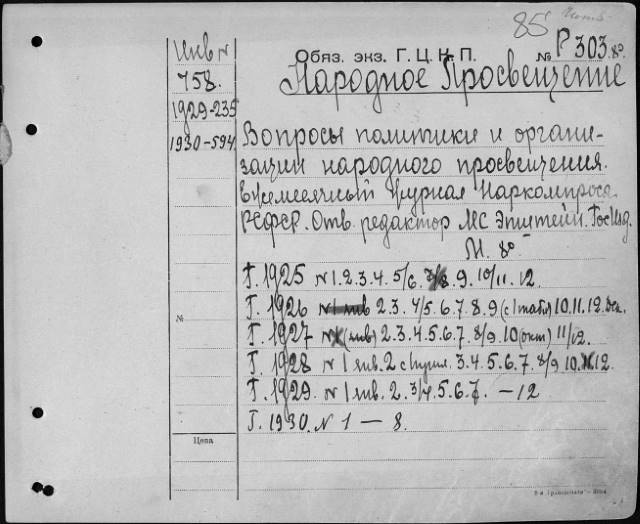 85
Инв №
758.
1929-235
1930-594
Обяз. экз. Г.Ц.К.П.
№ Р 303.8°
Народное Просвещение
Вопросы политики и органи-
зации народного просвещения.
Ежемесячный журнал Наркомпроса
РСФСР. Отв. редактор МС Эпштейн. ГосИзд.
М. 8°
Г. 1925 № 1.2.3.4. 5/6. 7/8. 9. 10/11. 12.
Г. 1926 № 1 янв 2.3. 4/5. 6. 7. 8. 9 (с 1 табл) 10. 11. 12. дек.
Г. 1927 № 1 (янв) 2. 3. 4. 5. 6. 7. 8/9. 10 (окт) 11/12.
Г. 1928 № 1 янв. 2 3. 4. 5. 6. 7. 8/9 10. 11. 12.
Г. 1929. № 1 янв. 2. 3/4. 5. 6. 7. — 12
Г. 1930. № 1 — 8.
№
Цена